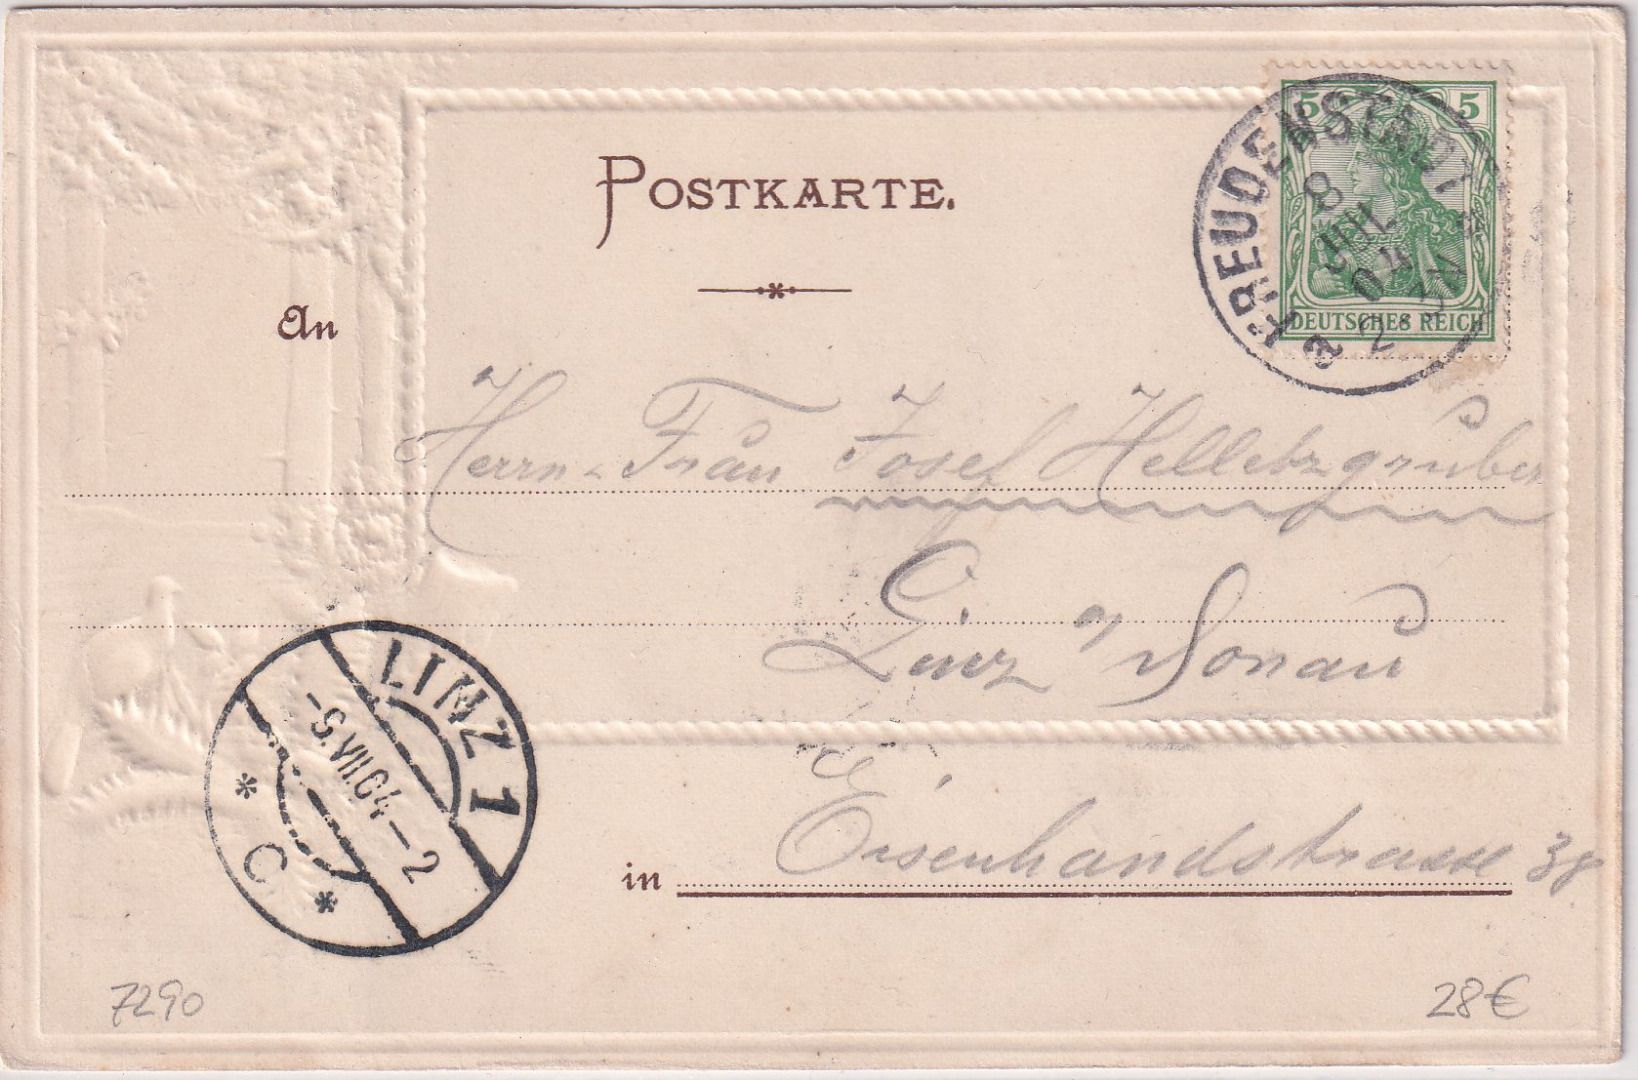 POSTKARTE.
5 5
DEUTSCHES REICH
FREUDENSTADT
8
JUL
04
2-3N
a
An
Herrn u Frau Josef Helletzgruber
Linz a/ Donau
LINZ 1
-9.VII.04-2
* C *
in Eisenhandstrasse 38
7290
28€